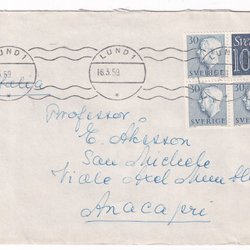 LUND 1
16.3.59
LUND 1
30
30
30
SVERIGE
SVERIGE SVERIGE
Professor
E. Åkesson
San Michele
Viale Axel Munthe
Anacapri